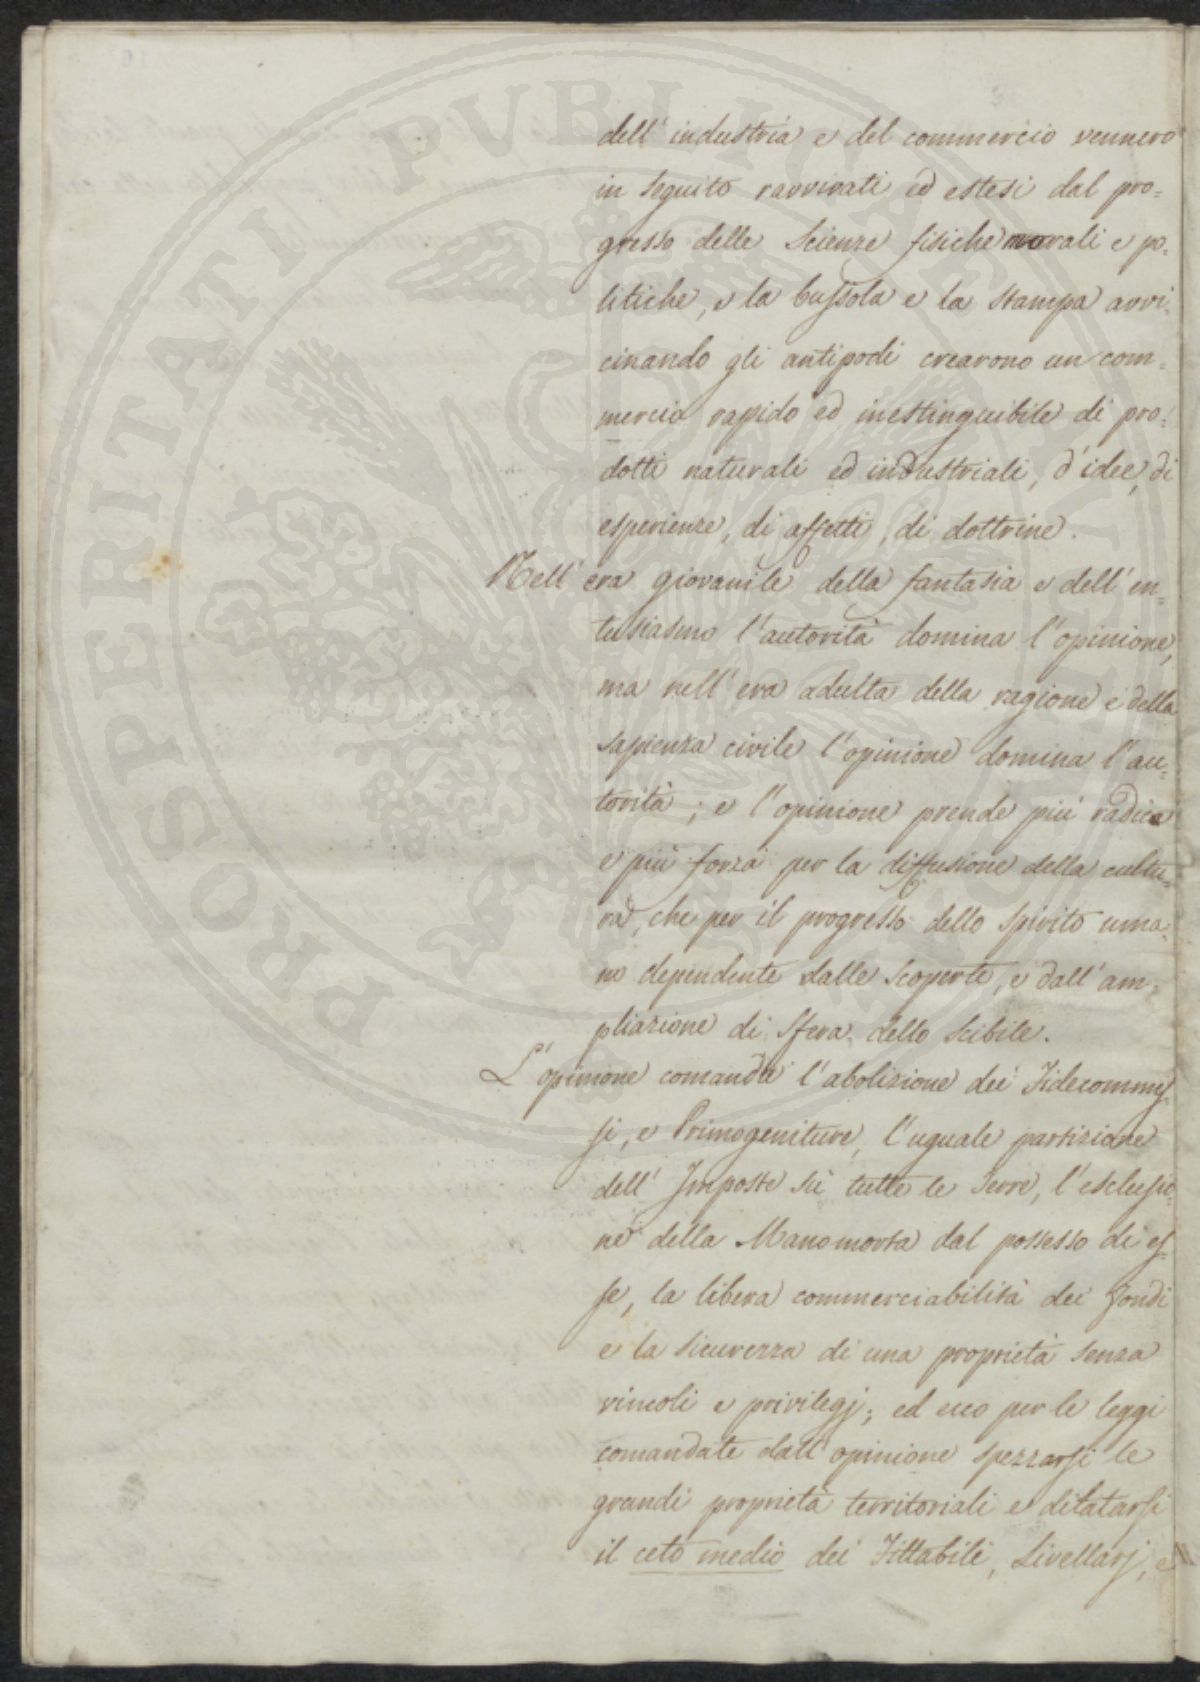 dell' industria e del commercio vennero
in seguito ravvivati ed estesi dal pro=
gresso delle Scienze fisiche morali e po=
litiche, e la bussola e la stampa avvi=
cinando gli antipodi crearono un com=
mercio rapido ed inestinguibile di pro=
dotti naturali ed industriali, d'idee, di
esperienze, di affetti, di dottrine.
Nell' era giovanile della fantasia e dell' en=
tusiasmo l'autorità domina l'opinione,
ma nell' era adulta della ragione e della
sapienza civile l'opinione domina l'au=
torità; e l'opinione prende più radice
e più forza per la diffusione della cultu=
ra, che per il progresso dello spirito uma=
no dependente dalle scoperte, e dall' am=
pliazione di sfera dello scibile.
L'opinione comanda l'abolizione dei Fidecommis=
si, e Primogeniture, l'uguale partizione
dell' Imposte su tutte le Terre, l'esclusio=
ne della Manomorta dal possesso di es=
se, la libera commerciabilità dei fondi
e la sicurezza di una proprietà senza
vincoli e privilegj; ed ecco per le leggi
comandate dall' opinione spezzarsi le
grandi proprietà territoriali e dilatarsi
il ceto medio dei Fittabili, Livellarj, e
PROSPERITATI PUBLICAE